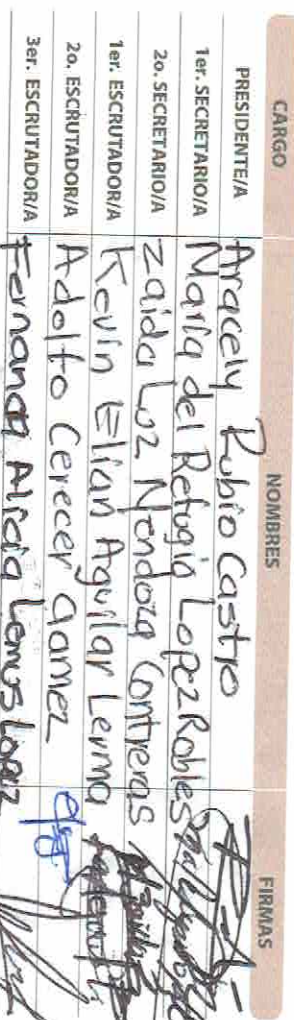 CARGO NOMBRES FIRMAS
PRESIDENTE/A Aracely Rubio Castro
1er. SECRETARIO/A María del Refugio Lopez Robles
2o. SECRETARIO/A Zaida Luz Mendoza Contreras
1er. ESCRUTADOR/A Kevin Elian Aguilar Lerma
2o. ESCRUTADOR/A Adolfo Cerecer Gamez
3er. ESCRUTADOR/A Fernanda Alicia Lemus Lopez